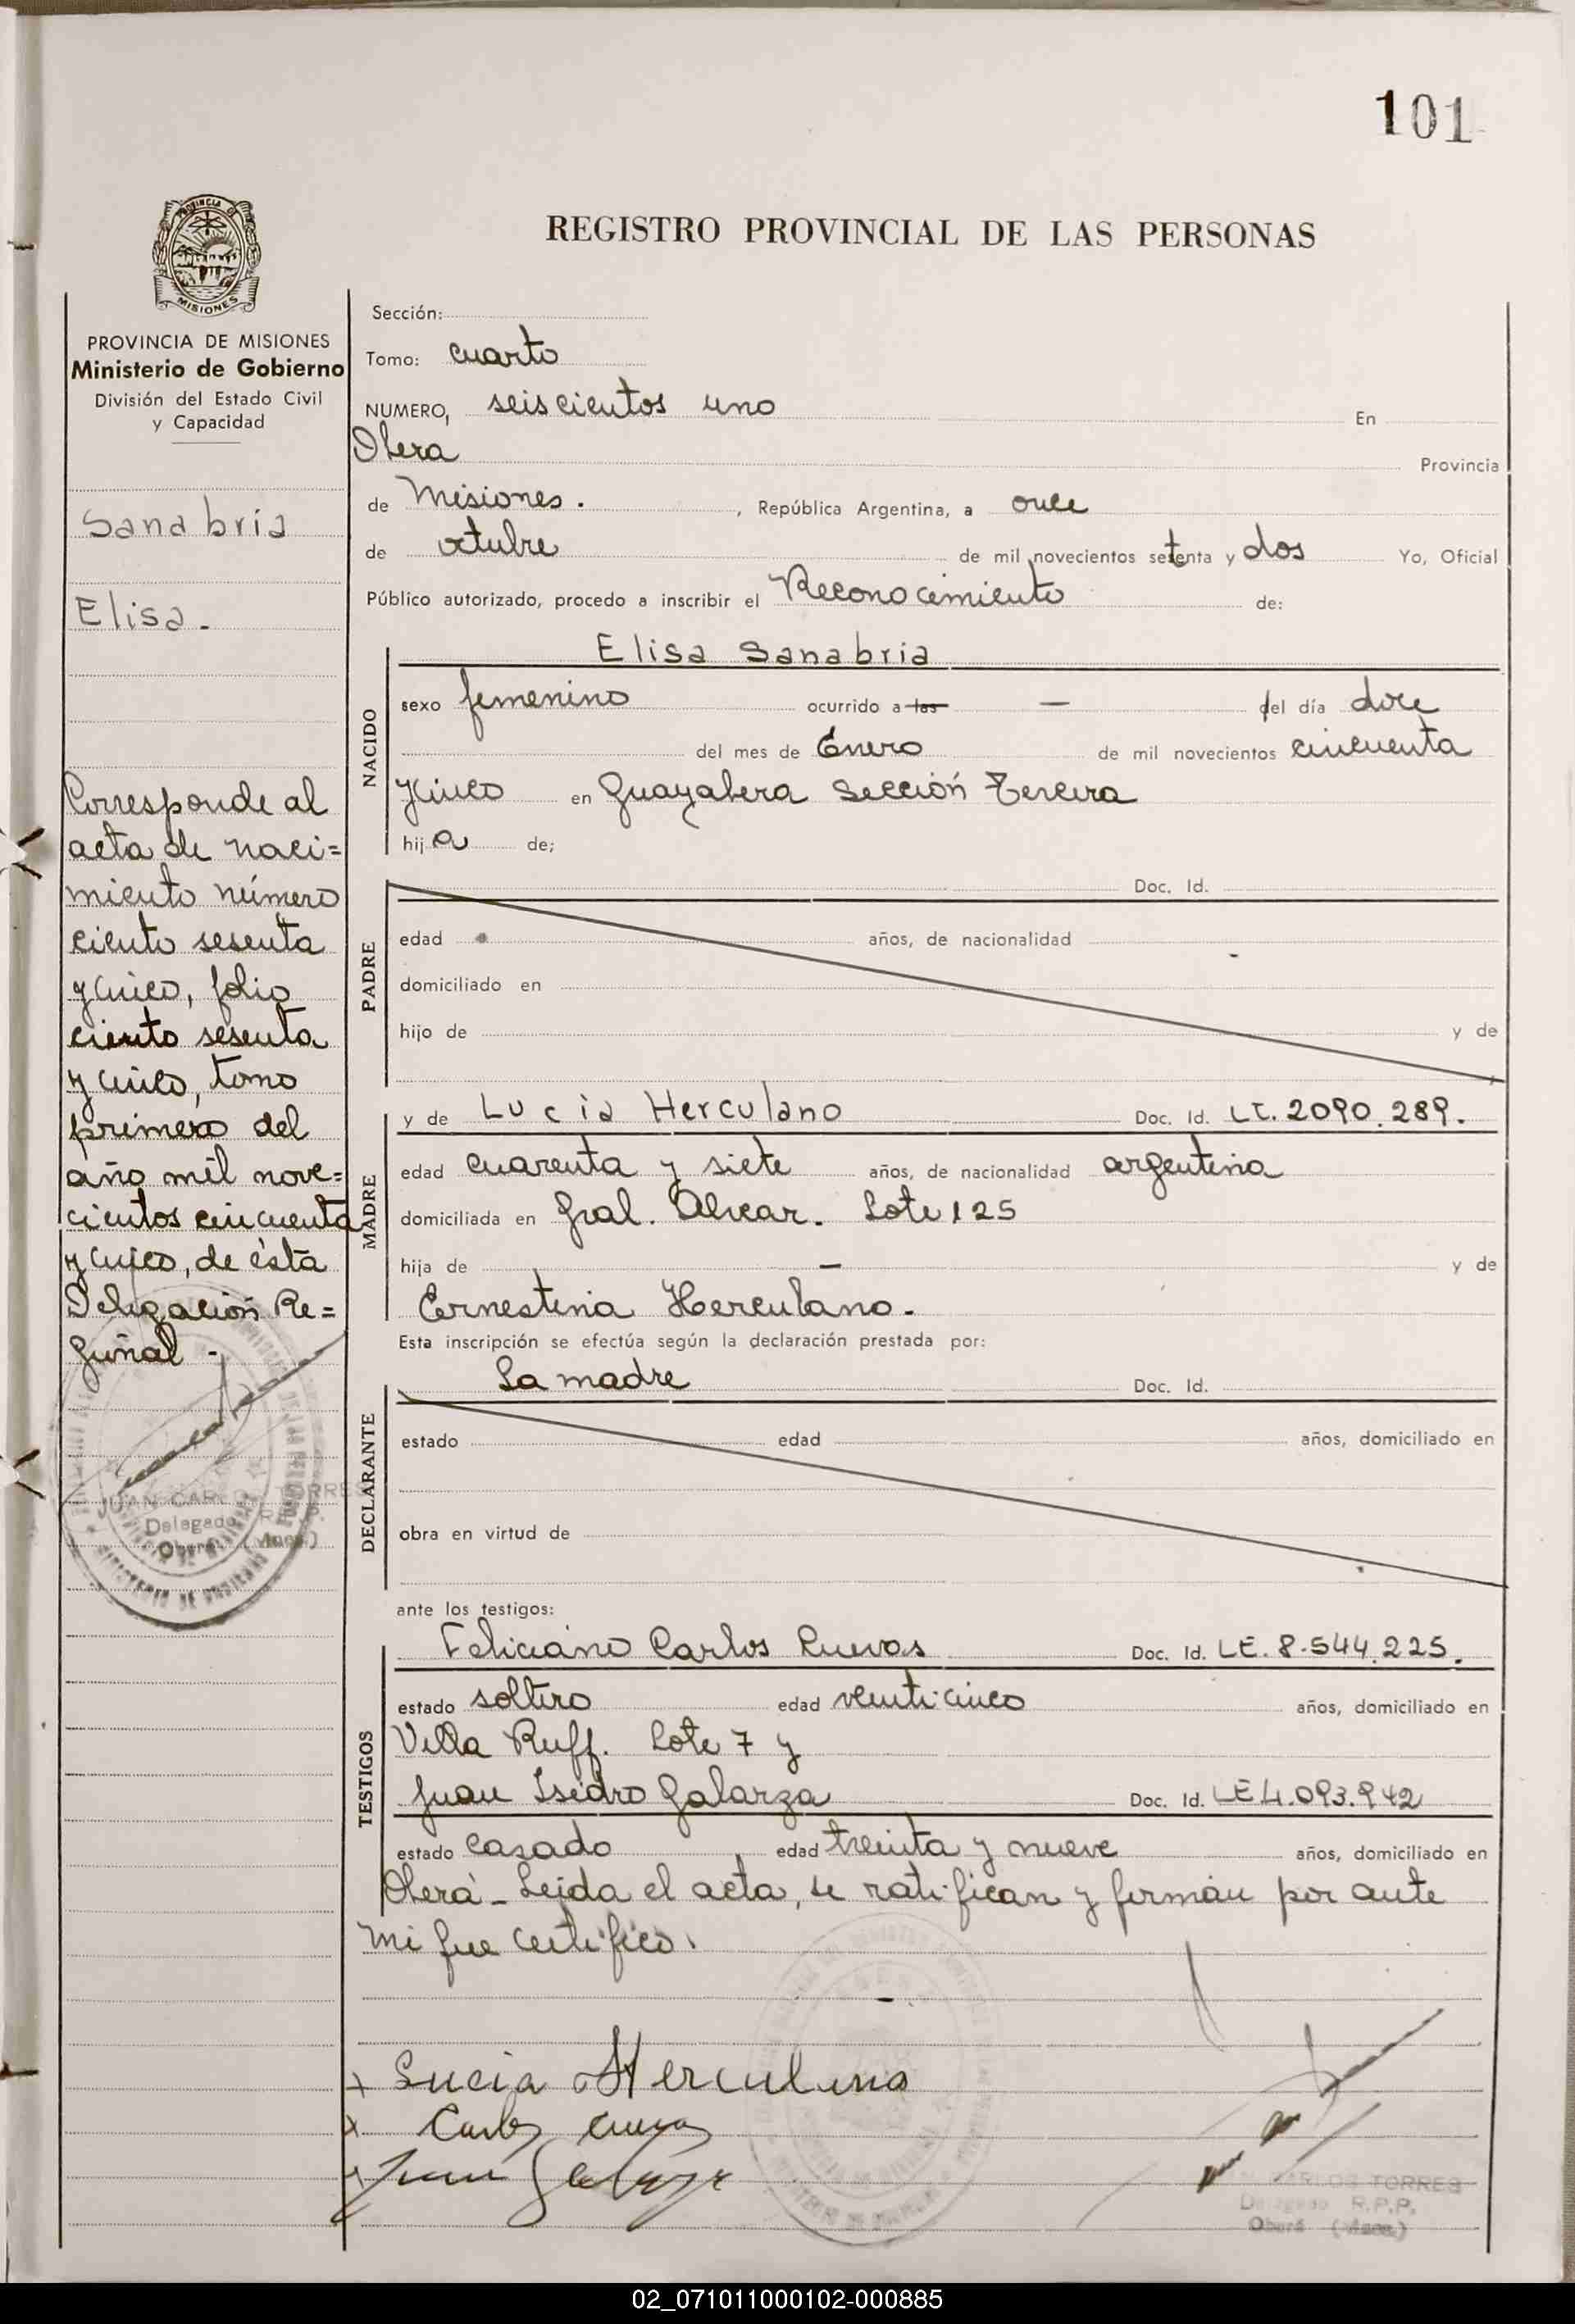 101
PROVINCIA DE
MISIONES
REGISTRO PROVINCIAL DE LAS PERSONAS
PROVINCIA DE MISIONES
Ministerio de Gobierno
División del Estado Civil
y Capacidad
Sanabria
Elisa.
Corresponde al
acta de naci=
miento número
ciento sesenta
y cinco, folio
ciento sesenta
y cinco, tomo
primero del
año mil nove=
cientos cincuenta
y cinco, de ésta
Delegación Re=
gional -
JUAN CARLOS TORRES
Delegado R.P.P.
Oberá (Mnes.)
Sección:
Tomo: cuarto
NUMERO, seiscientos uno En
Obera Provincia
de Misiones. , República Argentina, a once
de octubre de mil novecientos setenta y dos Yo, Oficial
Público autorizado, procedo a inscribir el Reconocimiento de:
NACIDO
Elisa Sanabria
sexo femenino ocurrido a las — del día doce
del mes de Enero de mil novecientos cincuenta
y cinco en Guayabera Sección Tercera
hija de;
PADRE
Doc. Id.
edad años, de nacionalidad
domiciliado en
hijo de y de
MADRE
y de Lucia Herculano Doc. Id. LC. 2090.289.
edad cuarenta y siete años, de nacionalidad argentina
domiciliada en Gral. Alvear. Lote 125
hija de — y de
Ernestina Herculano.
Esta inscripción se efectúa según la declaración prestada por:
DECLARANTE
La madre Doc. Id.
estado edad años, domiciliado en
obra en virtud de
ante los testigos:
TESTIGOS
Feliciano Carlos Cuevas Doc. Id. LE. 8.544.225.
estado soltero edad veinticinco años, domiciliado en
Villa Ruff. Lote 7 y
Juan Isidro Galarza Doc. Id. LE 4.093.942
estado casado, edad treinta y nueve años, domiciliado en
Oberá - Leida el acta, se ratifican y firman por ante
mi que certifico.
Lucia Herculano
Carlos Cuevas
Juan Galarza
JUAN CARLOS TORRES
Delegado R.P.P.
Oberá (Mnes.)
02_071011000102-000885